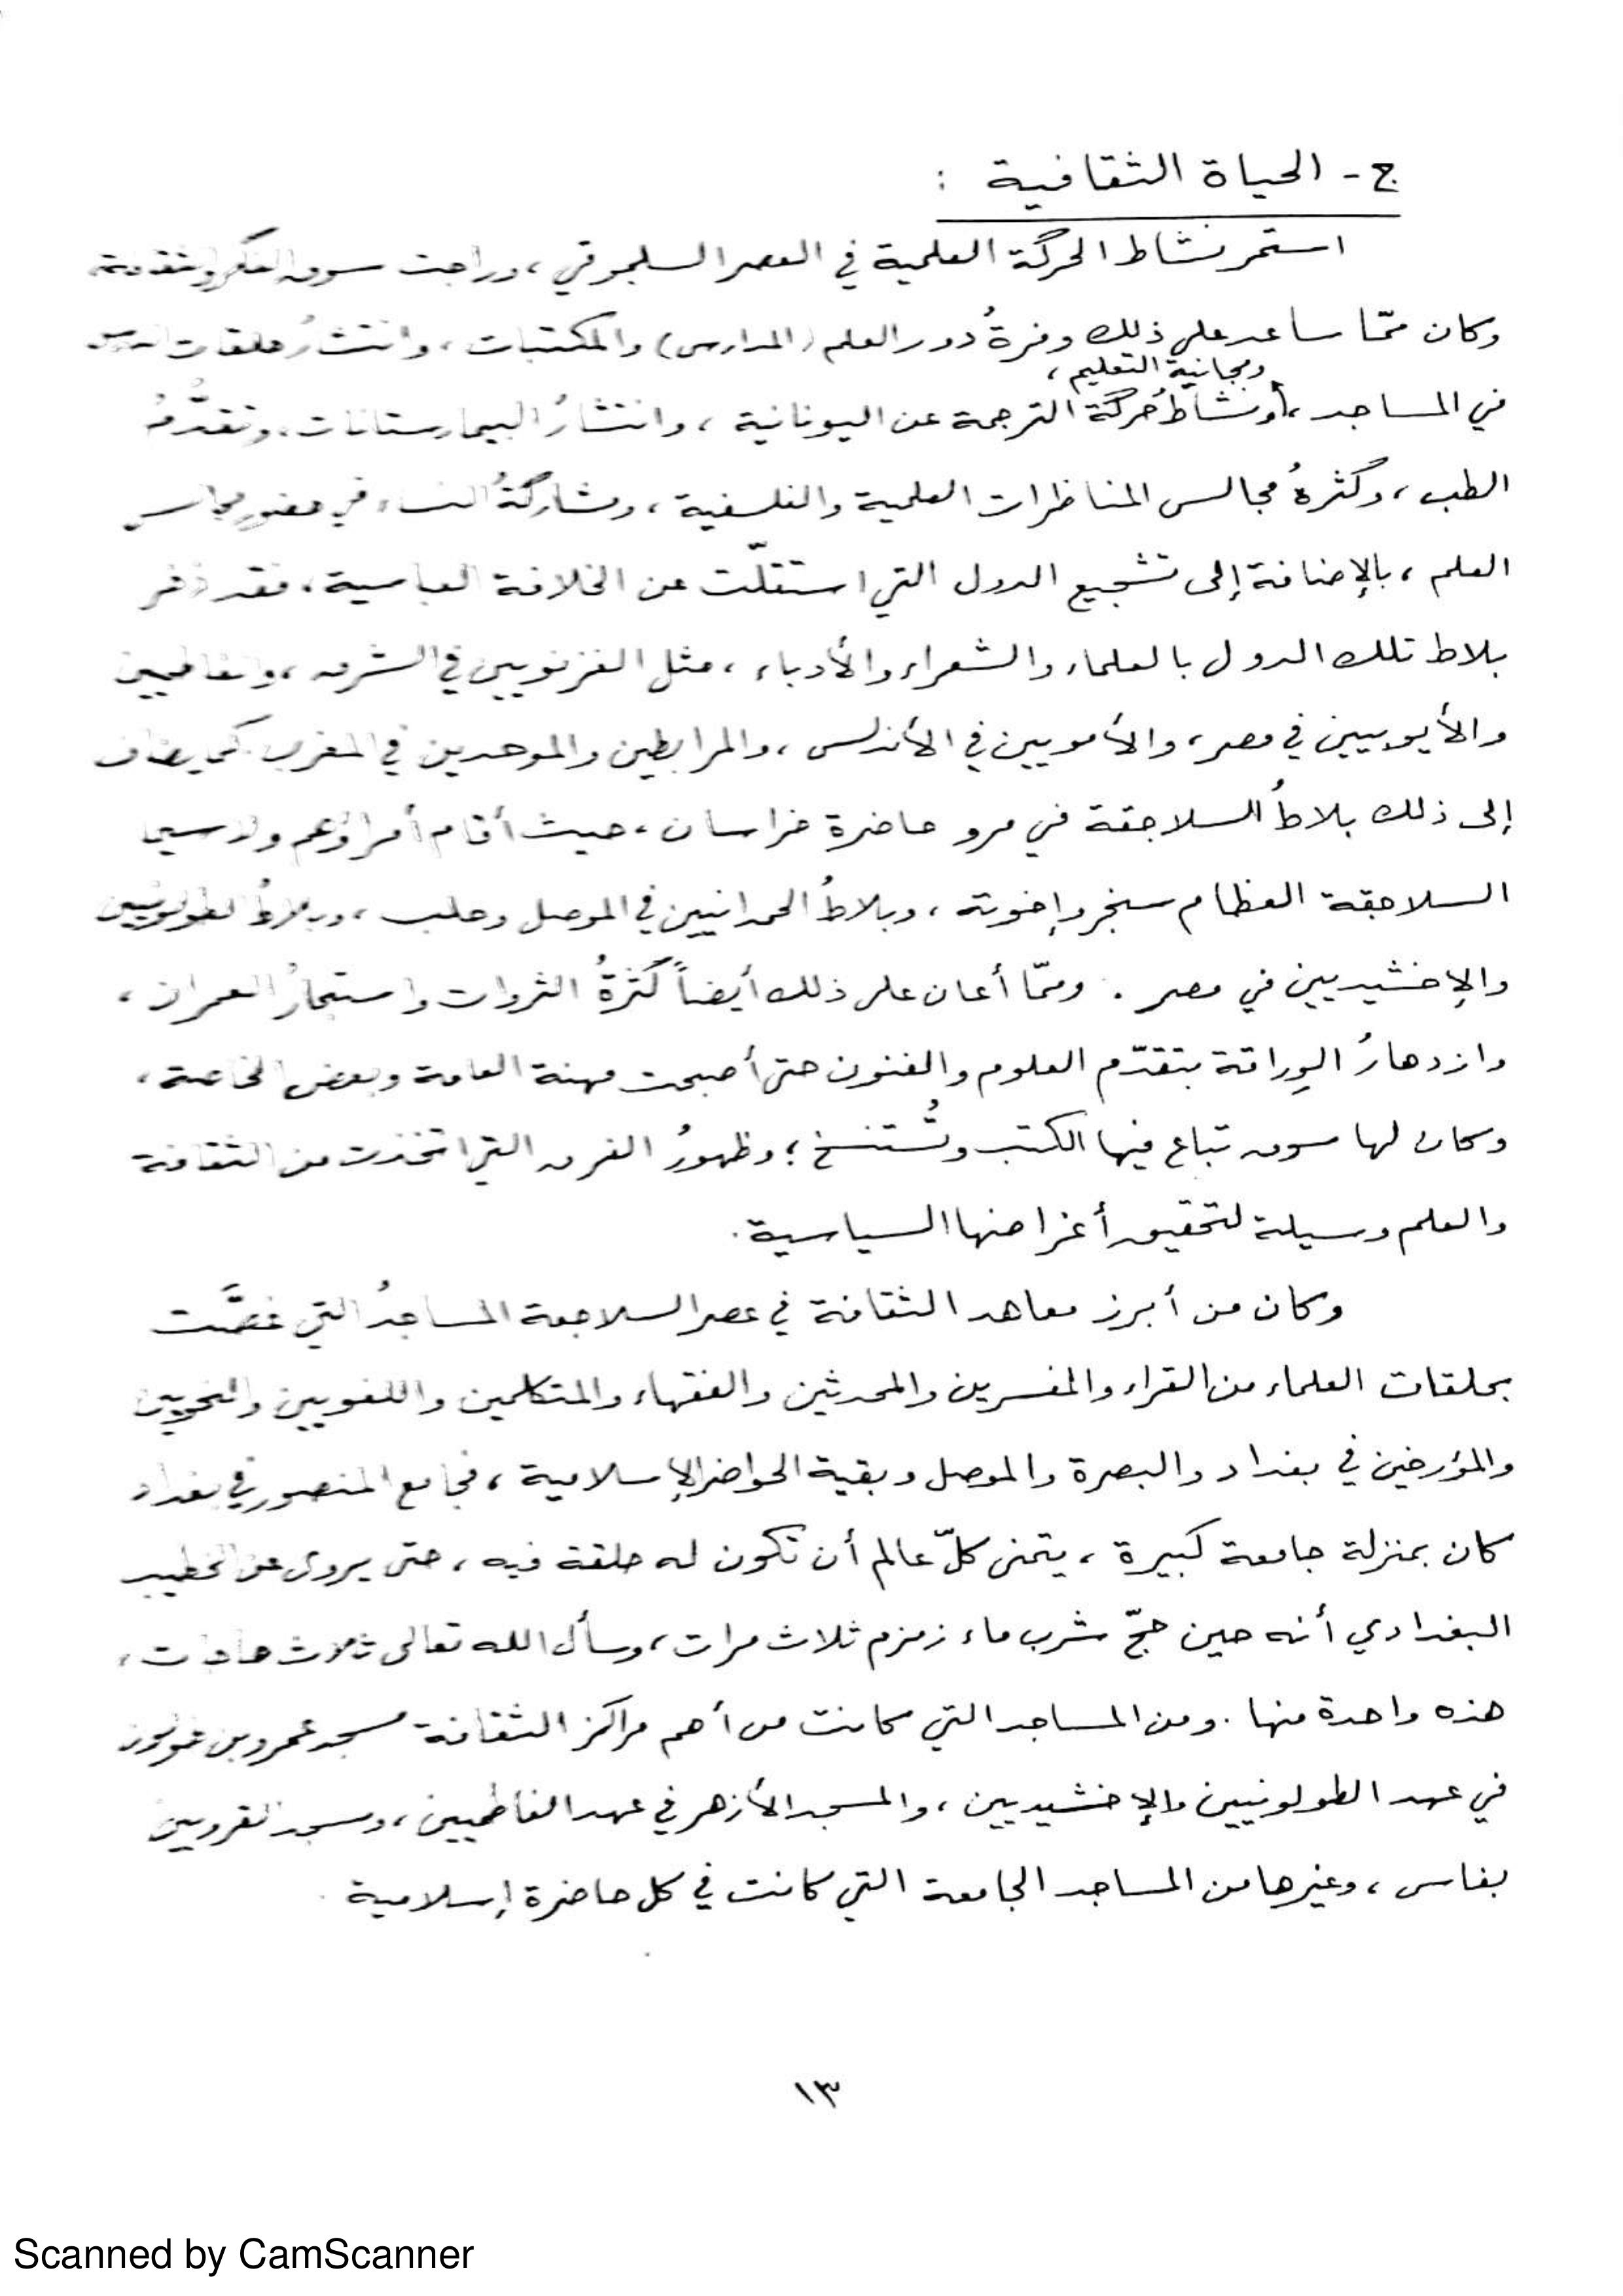 ج - الحياة الثقافية :
استمر نشاط الحركة العلمية في العصر السلجوقي ، وراجت سوق الفكر والثقافة
وكان ممّا ساعد على ذلك وفرةُ دور العلم (المدارس) والمكتبات ، وانتشارُ حلقات الدرس
ومجانية التعليم ،
في المساجد ، ونشاطُ حركة الترجمة عن اليونانية ، وانتشارُ البيمارستانات ، وتقدُّمُ
الطب ، وكثرةُ مجالس المناظرات العلمية والفلسفية ، ومشاركةُ النساء في حضور مجالس
العلم ، بالإضافة إلى تشجيع الدول التي استقلّت عن الخلافة العباسية ، فقد زخر
بلاط تلك الدول بالعلماء والشعراء والأدباء ، مثل الغزنويين في الشرق ، والفاطميين
والأيوبيين في مصر ، والأمويين في الأندلس ، والمرابطين والموحدين في المغرب . كما يضاف
إلى ذلك بلاطُ السلاجقة في مرو حاضرة خراسان ، حيث أقام أمراؤهم ولا سيما
السلاجقة العظام سنجر وإخوته ، وبلاطُ الحمدانيين في الموصل وحلب ، وبلاطُ الطولونيين
والإخشيديين في مصر . وممّا أعان على ذلك أيضاً كثرةُ الثروات واستبحارُ العمران ،
وازدهارُ الوِراقة بتقدّم العلوم والفنون حتى أصبحت مهنة العامة وبعض الخاصة ،
وكان لها سوق تباع فيها الكتب وتُستنسخ ؛ وظهورُ الفرق التي اتخذت من الثقافة
والعلم وسيلة لتحقيق أغراضها السياسية .
وكان من أبرز معاهد الثقافة في عصر السلاجقة المساجدُ التي غصَّت
بحلقات العلماء من القراء والمفسرين والمحدثين والفقهاء والمتكلمين واللغويين والنحويين
والمؤرخين في بغداد والبصرة والموصل وبقية الحواضر الإسلامية ، فجامع المنصور في بغداد
كان بمنزلة جامعة كبيرة ، يتمنى كلّ عالم أن تكون له حلقة فيه ، حتى يروى عن الخطيب
البغدادي أنه حين حجّ شرب ماء زمزم ثلاث مرات ، وسأل الله تعالى ثلاث حاجات ،
هذه واحدة منها . ومن المساجد التي كانت من أهم مراكز الثقافة مسجد عمرو بن
في عهد الطولونيين والإخشيديين ، والمسجد الأزهر في عهد الفاطميين ، ومسجد القرويين
بفاس ، وغيرها من المساجد الجامعة التي كانت في كل حاضرة إسلامية .
١٣
Scanned by CamScanner